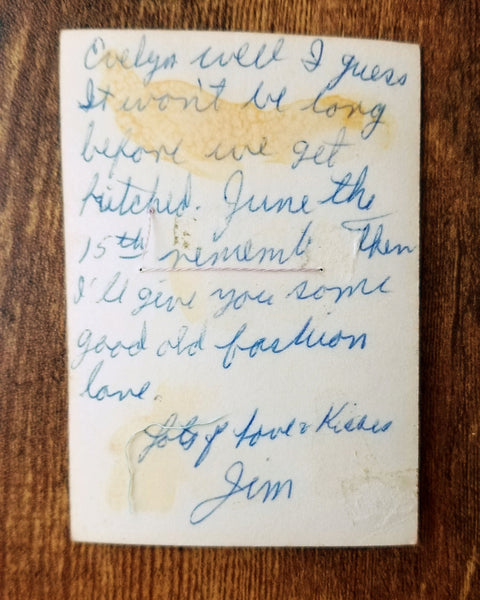 Evelyn well I guess
It won't be long
before we get
hitched. June the
15th rememb then
I'll give you some
good old fashion
love.
Lots of Love & Kisses
Jim